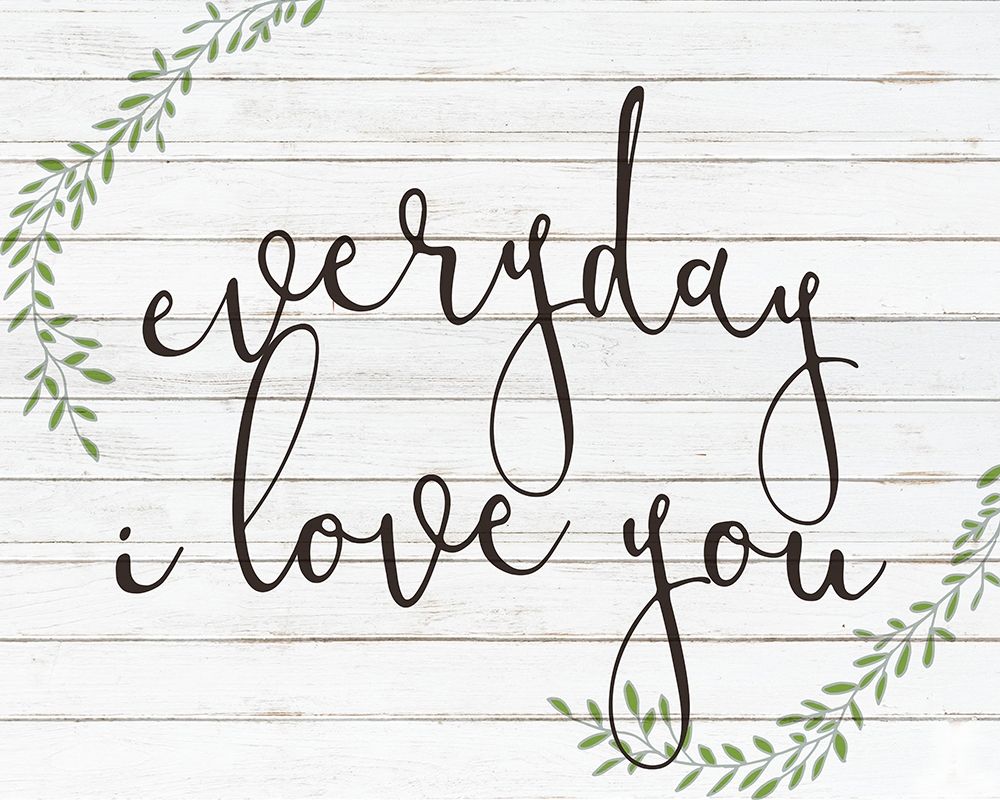 everyday
i love you